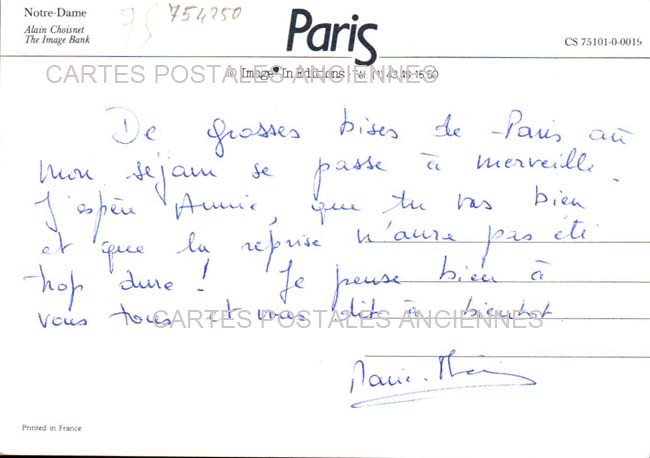 Notre-Dame
Alain Choisnet
The Image Bank
75
754250
Paris
CS 75101-0-0019
CARTES POSTALES ANCIENNES
© Image'In Editions - Tél. (1) 42.49.15.50
De grosses bises de Paris où
mon séjour se passe à merveille.
J'espère Annie, que tu vas bien
et que la reprise n'aura pas été
trop dure ! Je pense bien à
vous tous et vous dit à bientôt.
CARTES POSTALES ANCIENNES
Marie-
Printed in France